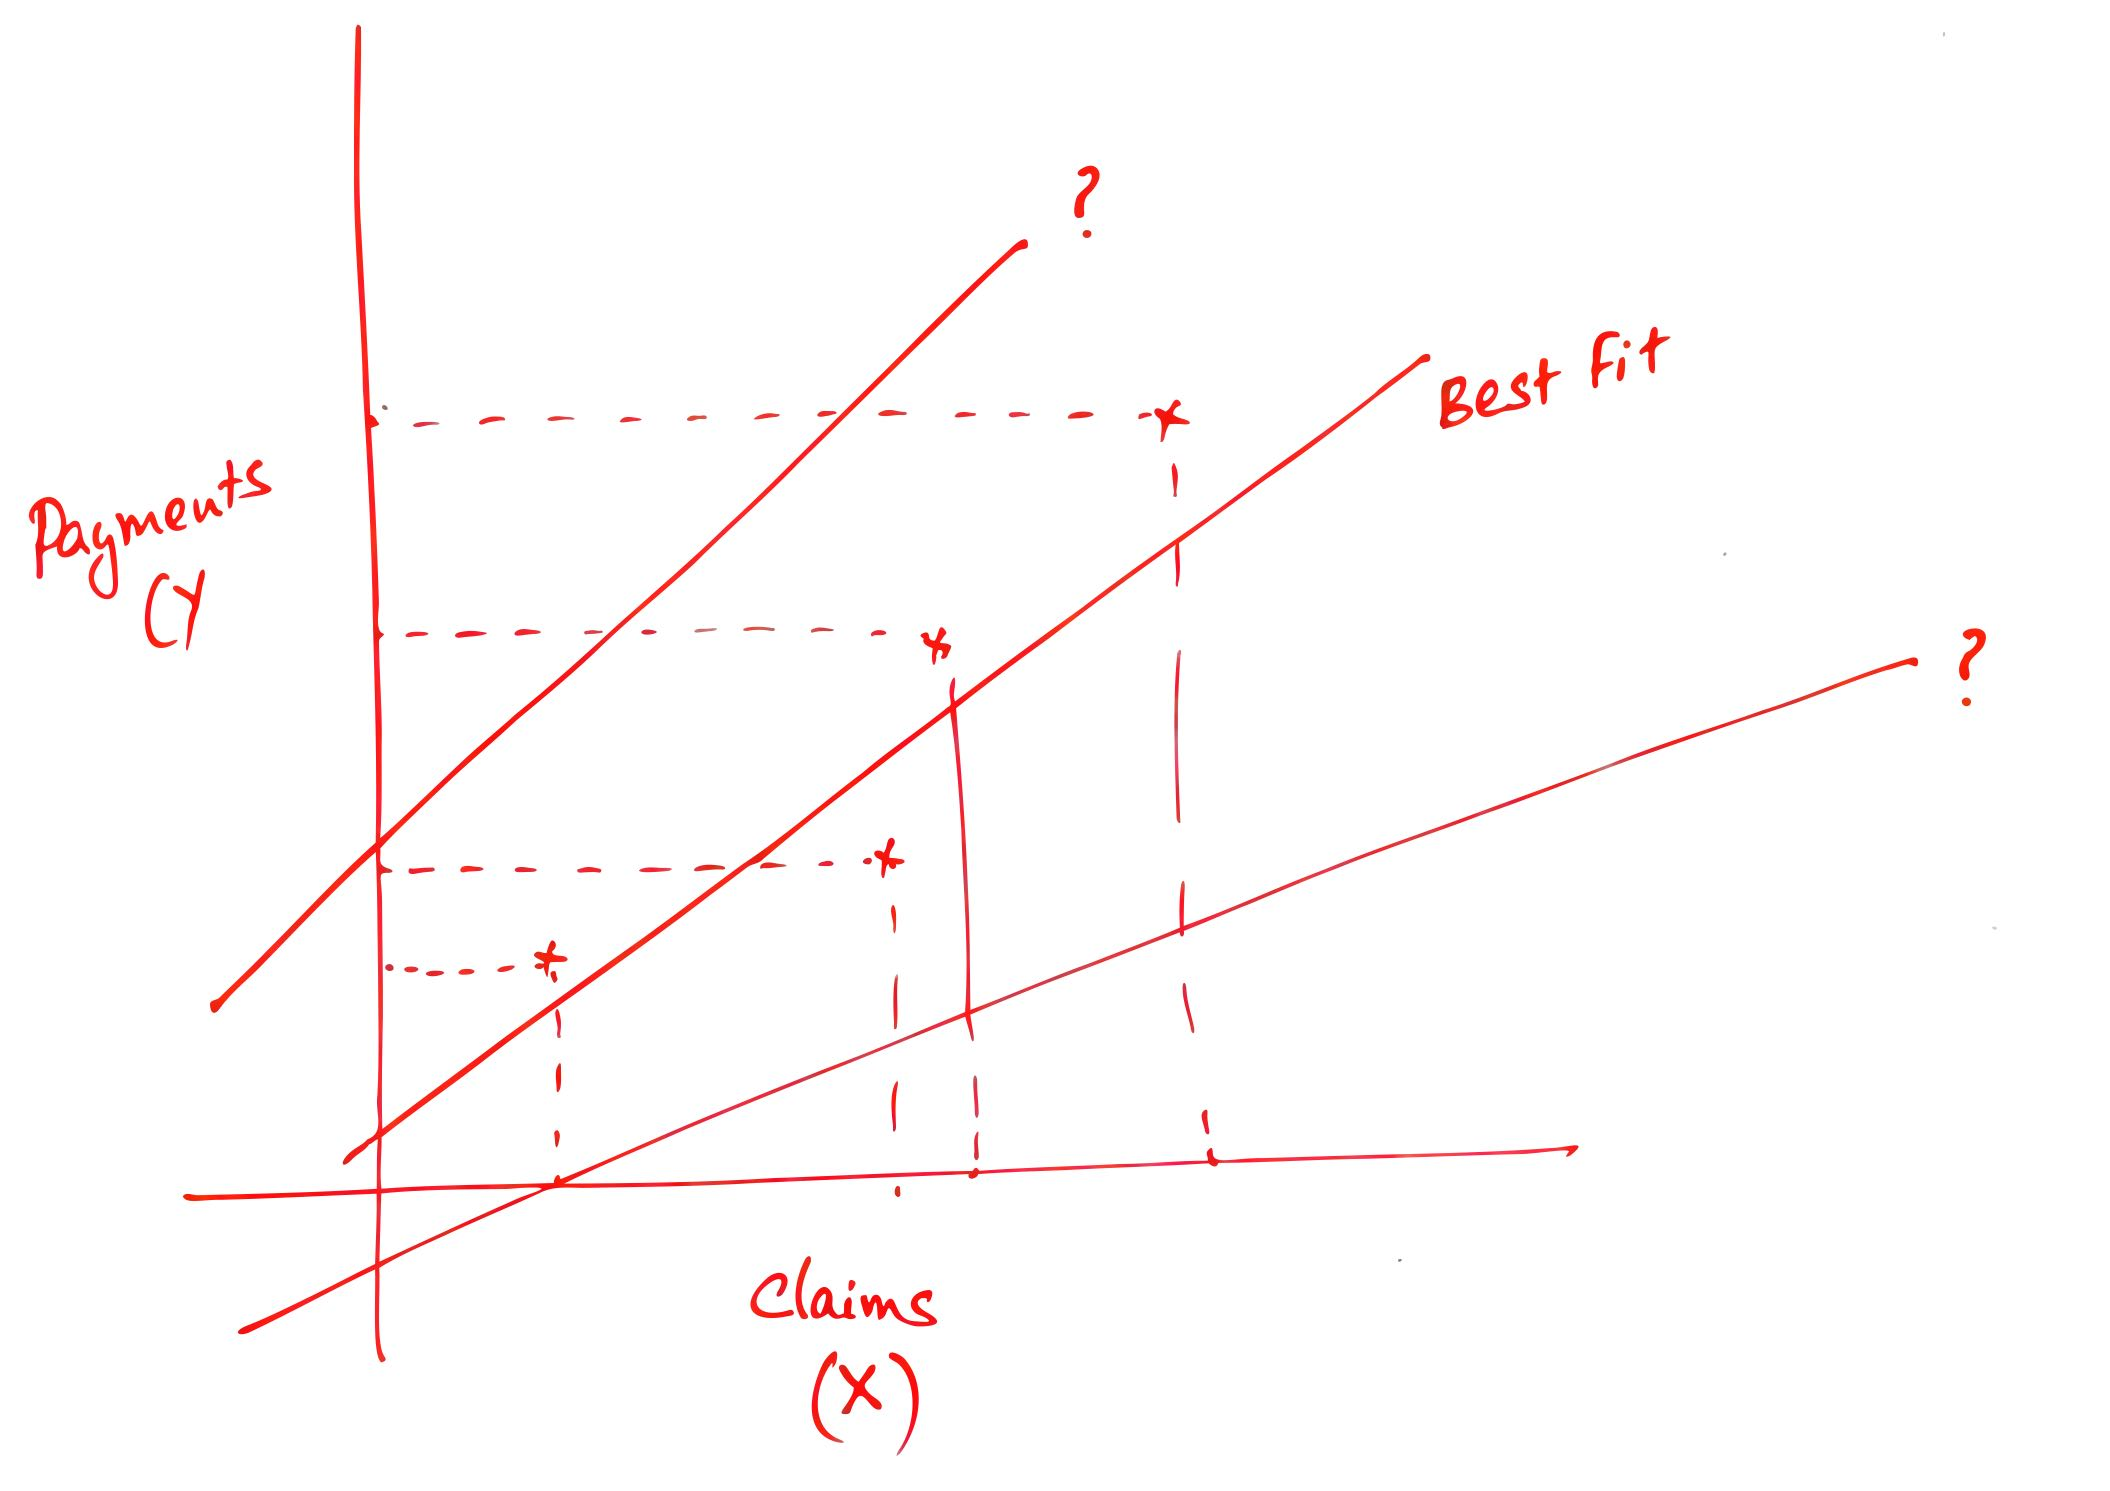 ?
Best fit
Payments
(Y
?
Claims
(X)